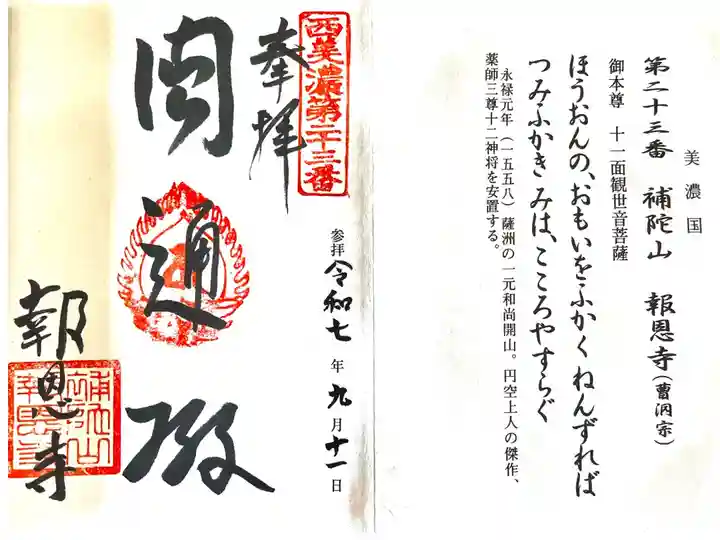 美濃国
第二十三番 補陀山 報恩寺(曹洞宗)
御本尊 十一面観世音菩薩
ほうおんの、おもいをふかく ねんずれば
つみふかき みは、こころやすらぐ
永禄元年(一五五八)薩洲の一元和尚開山。円空上人の傑作、
薬師三尊十二神将を安置する。
西美濃第二十三番
奉拝
参拝 令和七年九月十一日
圓通殿
報恩寺